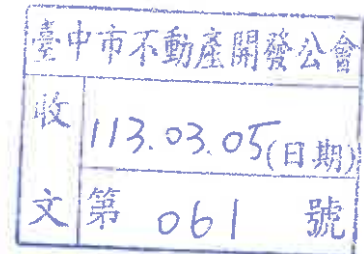 臺中市不動產開發公會
收
113.03.05(日期)
文
第 061 號